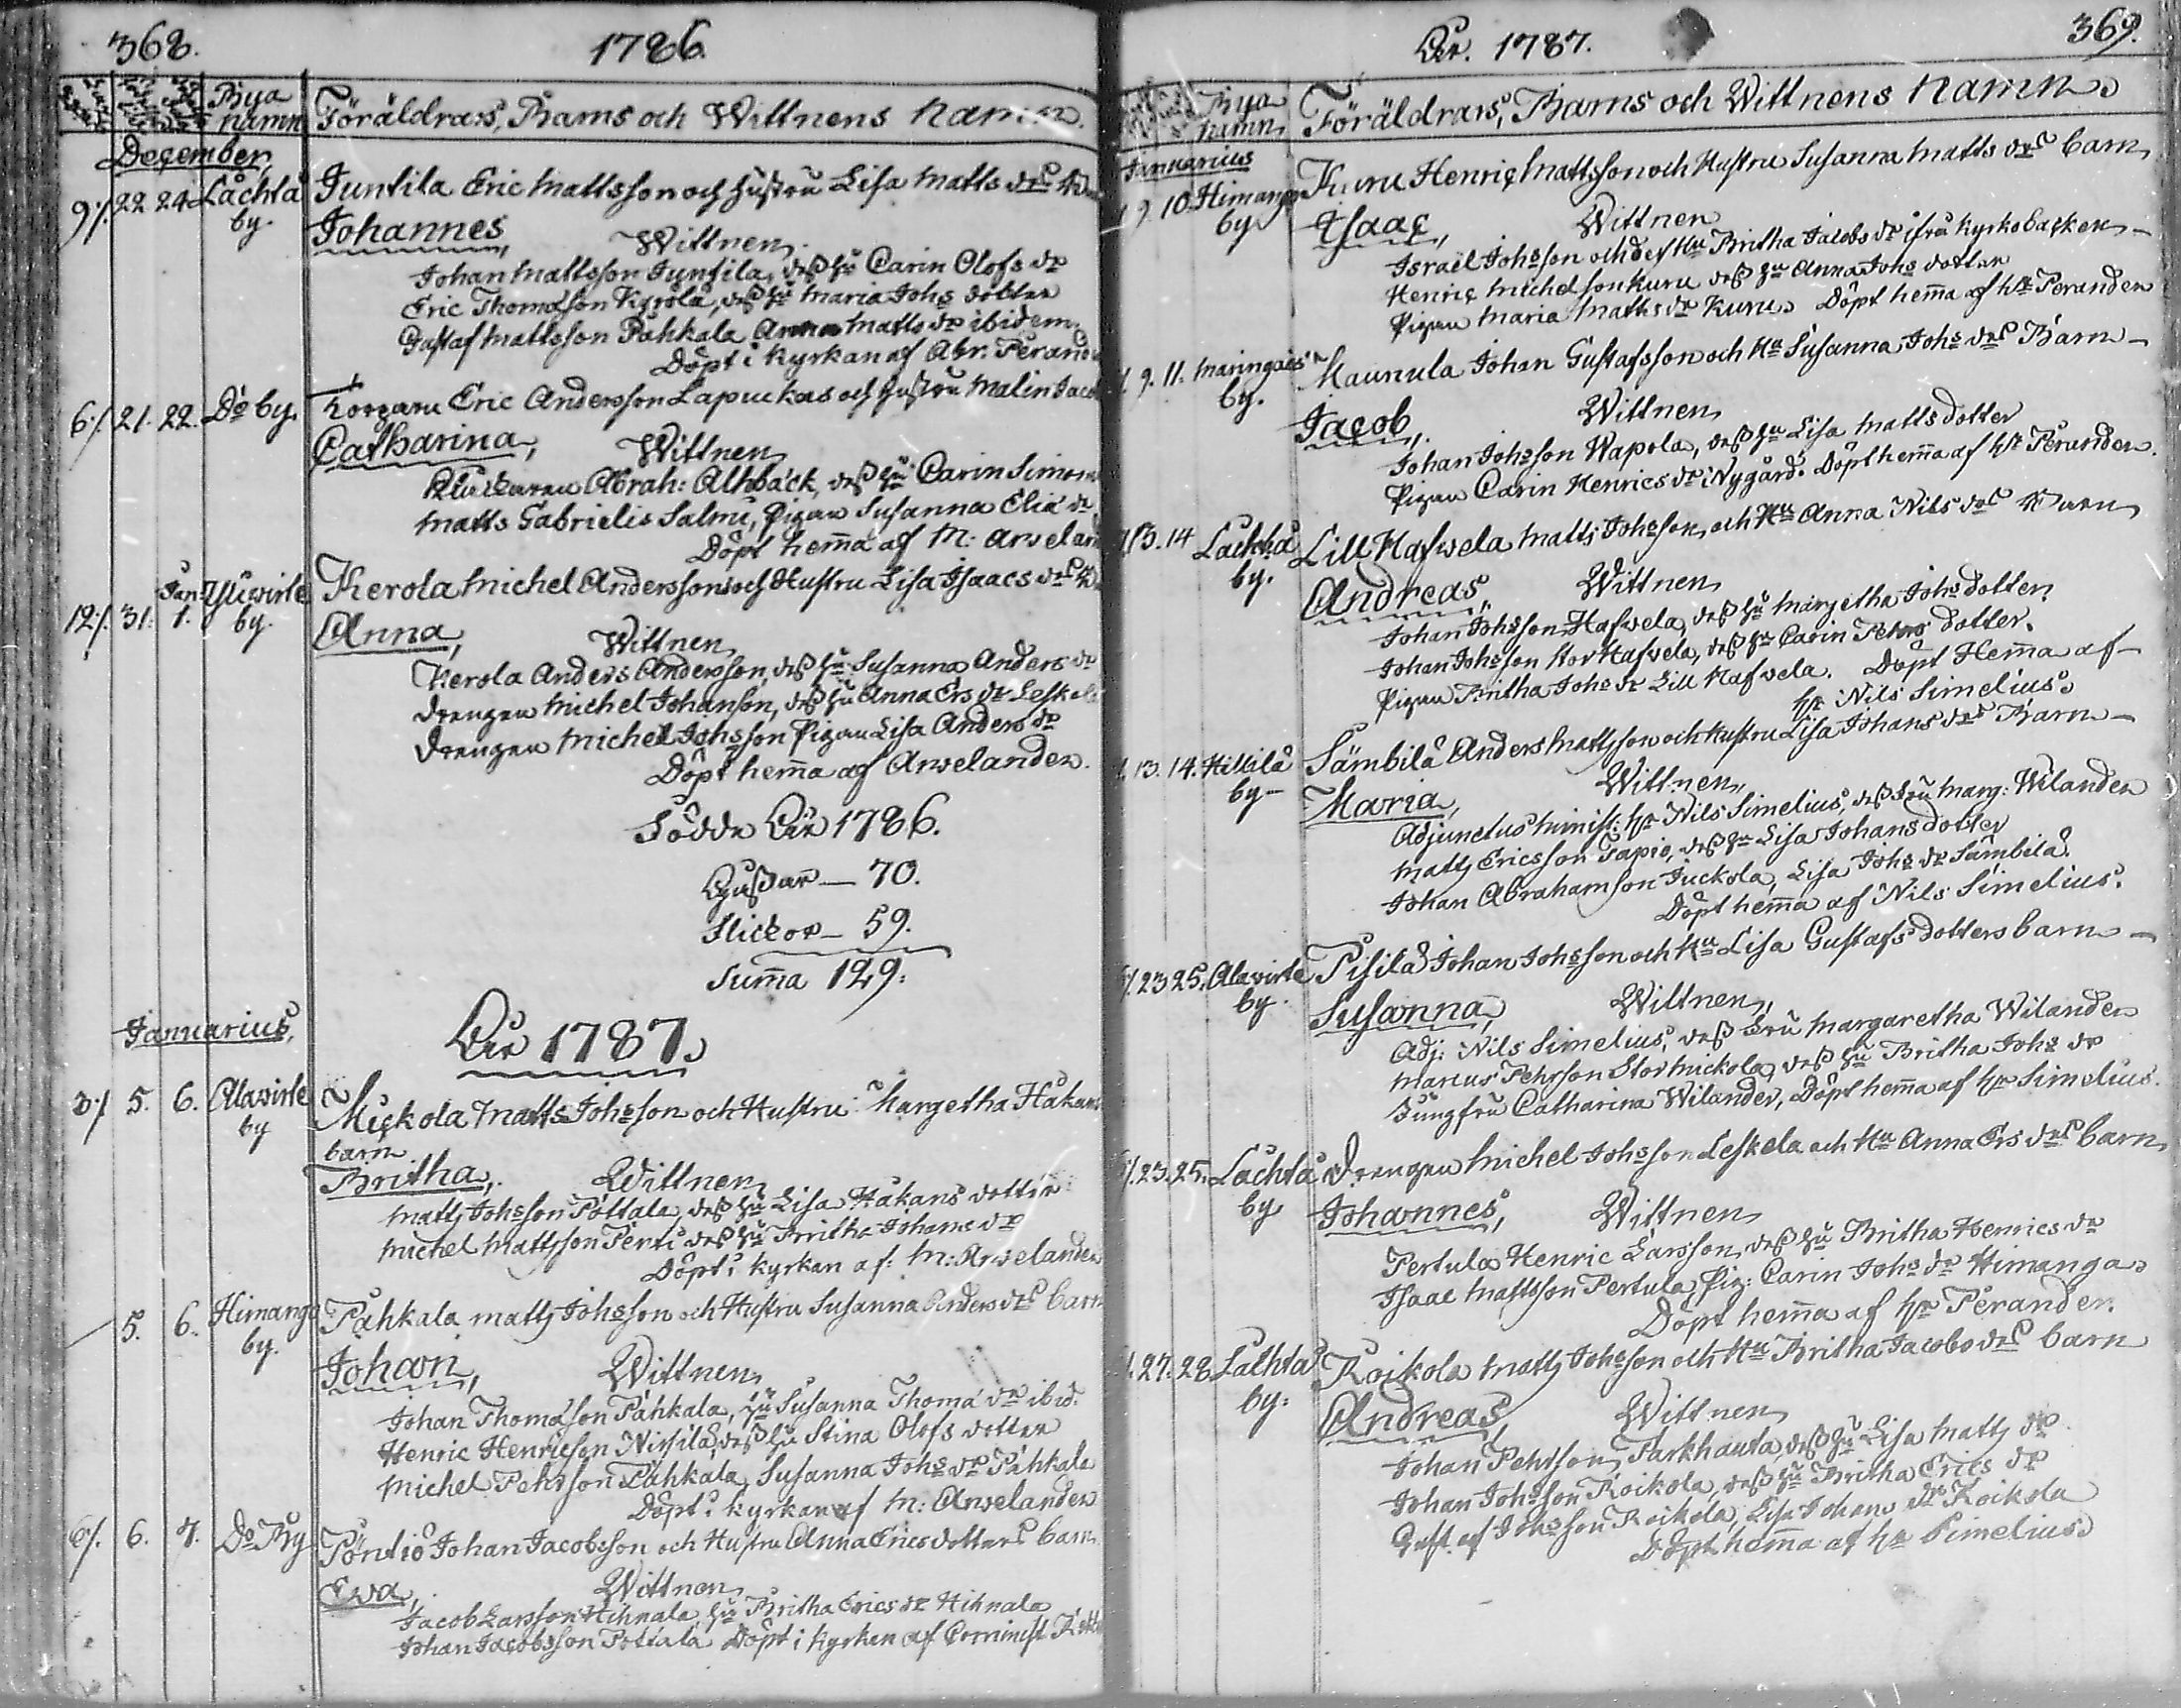 368.
1786.
Bya namn
Föräldrars, Barns och Wittnens namn.
December,
9/. 22 24 Låchtå by.
Juntila Eric Mattsson och Hustru Lisa Matts drs
Johannes,
Wittnen
Johan Mattsson Juntila, deß hu Carin Olofs dr
Eric Thomasson Kerola, deß hu Maria Johs dotter
Gustaf Mattsson Pahkala Anna Matts dr ibidem.
Döpt i Kyrkan af Abr. Perand
6./. 21. 22. Do by.
Eric Andersson Lapuckas och Hustru Malin Jacob
Catharina,
Wittnen
Klockaren Abrah: Alhbäck, deß hu Carin Simons
Matts Gabrielis Salmu, Pigan Susanna Elia dr
Döpt hema af M: Arveland
12/. 31. Jan. 1. Yliwirte by.
Kerola Michel Andersson och Hustru Lisa Isaacs drs
Anna,
Wittnen
Kerola Anders Andersson, deß hu Susanna Anders dr
Drengen Michel Johanson, deß hu Anna Ers dr Leskelä
Drengen Michel Johsson Pigan Lisa Anders dr
Döpt hema af Arvelander.
Födde Åhr 1786.
Goßar — 70.
Flickor — 59.
Suma 129.
Januarius,
Åhr 1787.
3/ 5. 6. Alawirte by
Mickola Matts Johsson och Hustru Margetha Håkans
barn.
Britha,
Wittnen
Matts Johsson Pottala, deß hu Lisa Håkans dotter
Michel Mattsson Perti deß hu Britha Johans dr
Döpt i kyrkan af: M: Arvelander
5. 6. Himango by.
Pahkala Matts Johsson och Hustru Susanna Anders drs barn
Johan,
Wittnen
Johan Thomasson Pahkala, hu Susanna Thoma dr ibid.
Henric Henricson Nissilä, deß hu Stina Olofs dotter
Michel Pehrson Pahkala, Susanna Johs dr Pahkala
Döpt i kyrkan af M: Arvelander
6/. 6. 7. Do By
Pöntiö Johan Jacobsson och Hustru Anna Erics dotters barn
Ewa,
Wittnen
Jacob Larsson Hihnala, hu Britha Erics dr Hihnala
Johan Jacobsson Pottala Döpt i kyrkan af
Åhr. 1787.
369.
Bya namn
Föräldrars, Barns och Wittnens namn
Januarius
9. 10. Himango by
Kuru Henric Mattsson och Hustru Susanna Matts drs barn
Isaac,
Wittnen
Israel Johsson och deß hu Britha Jacobs dr ifrån kyrkobacken
Henric Michelsson Kuru deß hu Anna Johs dotter
Pigan Maria Matts dr Kuru. Döpt hema af Hr Perander
9. 11. Maringais by.
Maunula Johan Gustafsson och Hu Susanna Johs drs Barn
Jacob,
Wittnen
Johan Johsson Wapola, deß hu Lisa Matts dotter
Pigan Carin Henrics dr Nygård. Döpt hema af Hr Perander.
13. 14 Lachtå by.
Lill Hafwela Matts Johsson, och Hu Anna Nils drs Barn
Andreas,
Wittnen
Johan Johsson Hafwela, deß hu Margetha Johs dotter
Johan Johsson Stor Hafvela, deß hu Carin Peters dotter.
Pigan Britha Johs dr Lill Hafvela. Döpt Hema af
Hr Nils Simelius.
13. 14. Hillilä by
Sämbilä Anders Mattsson och Hustru Lisa Johans drs Barn
Maria,
Wittnen
Adjunctus Minist: Hr Nils Simelius, deß Fru Marg: Wilander
Matts Ericsson Tapio, deß hu Lisa Johans dotter
Johan Abrahamson Juckola, Lisa Johs dr Sämbilä.
Döpt hema af Nils Simelius.
/. 23 25. Alawirte by.
Pisilä Johan Johsson och Hu Lisa Gustafs dotters barn
Susanna,
Wittnen
Adj: Nils Simelius, deß Fru Margaretha Wilander
Marcus Pehrson Stormickola, deß hu Britha Johs dr
Jungfru Catharina Wilander, Döpt hema af Hr Simelius.
/. 23. 25. Lachtå by
Drengen Michel Johsson Leskela och Hu Anna Ers drs barn
Johannes,
Wittnen
Pertula Henric Larsson, deß hu Britha Henrics dr
Isaac Mattsson Pertula, Pig: Carin Johs dr Himanga
Döpt hema af Hr Perander.
/. 27. 28 Lachtå by.
Roikola Matts Johsson och Hu Britha Jacobs drs barn
Andreas,
Wittnen
Johan Pehrsson Tarkhanta, deß hu Lisa Matts dr
Johan Johsson Roikola, deß hu Britha Erics dr
Gustaf Johsson Roikola, Lisa Johans dr Roikola
Döpt hema af Hr Simelius